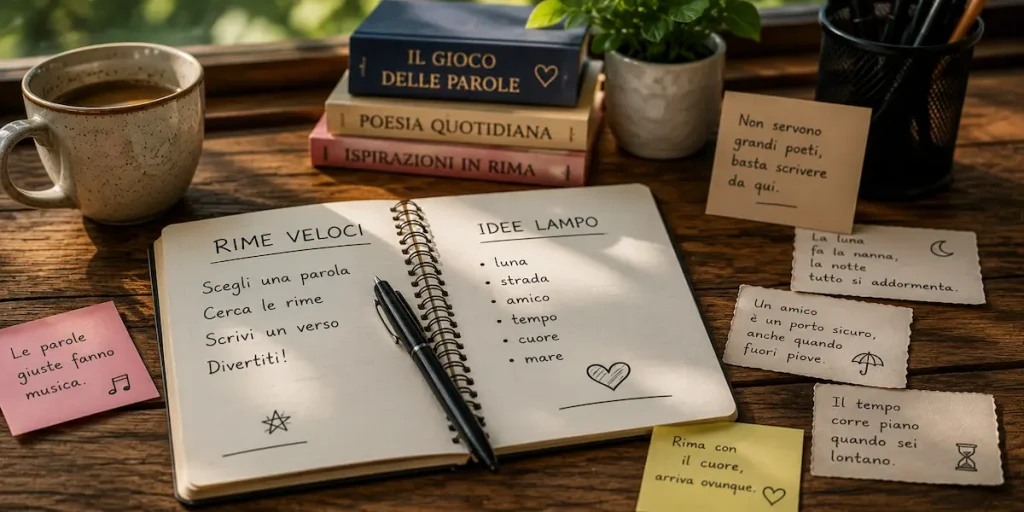 IL GIOCO
DELLE PAROLE
POESIA QUOTIDIANA
ISPIRAZIONI IN RIMA
Non servono
grandi poeti,
basta scrivere
da qui.
RIME VELOCI
Scegli una parola
Cerca le rime
Scrivi un verso
Divertiti!
IDEE LAMPO
• luna
• strada
• amico
• tempo
• cuore
• mare
La luna
fa la nanna,
la notte
tutto si addormenta.
Un amico
è un porto sicuro,
anche quando
fuori piove.
Le parole
giuste fanno
musica.
Il tempo
corre piano
quando sei
lontano.
Rima con
il cuore,
arriva ovunque.